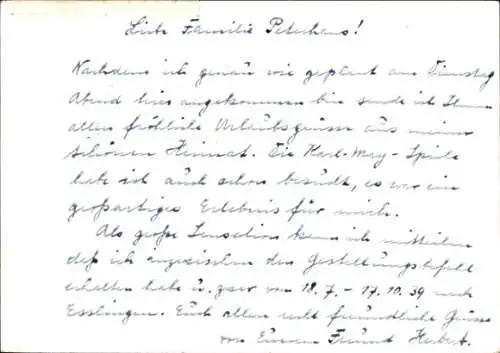 Liebe Familie Peterhans!
Nachdem ich genau wie geplant am Dienstag
Abend hier angekommen bin sende ich Ihnen
allen fröhliche Urlaubsgrüsse aus meiner
schönen Heimat. Die Karl-May-Spiele
habe ich auch schon besucht, es war ein
großartiges Erlebnis für mich.
Als große Sensation kann ich mitteilen
daß ich inzwischen den Gestellungsbefehl
erhalten habe u. zwar vom 18.7. - 17.10.39 nach
Esslingen. Euch allen recht freundliche Grüsse
von Eurem Freund Herbert.